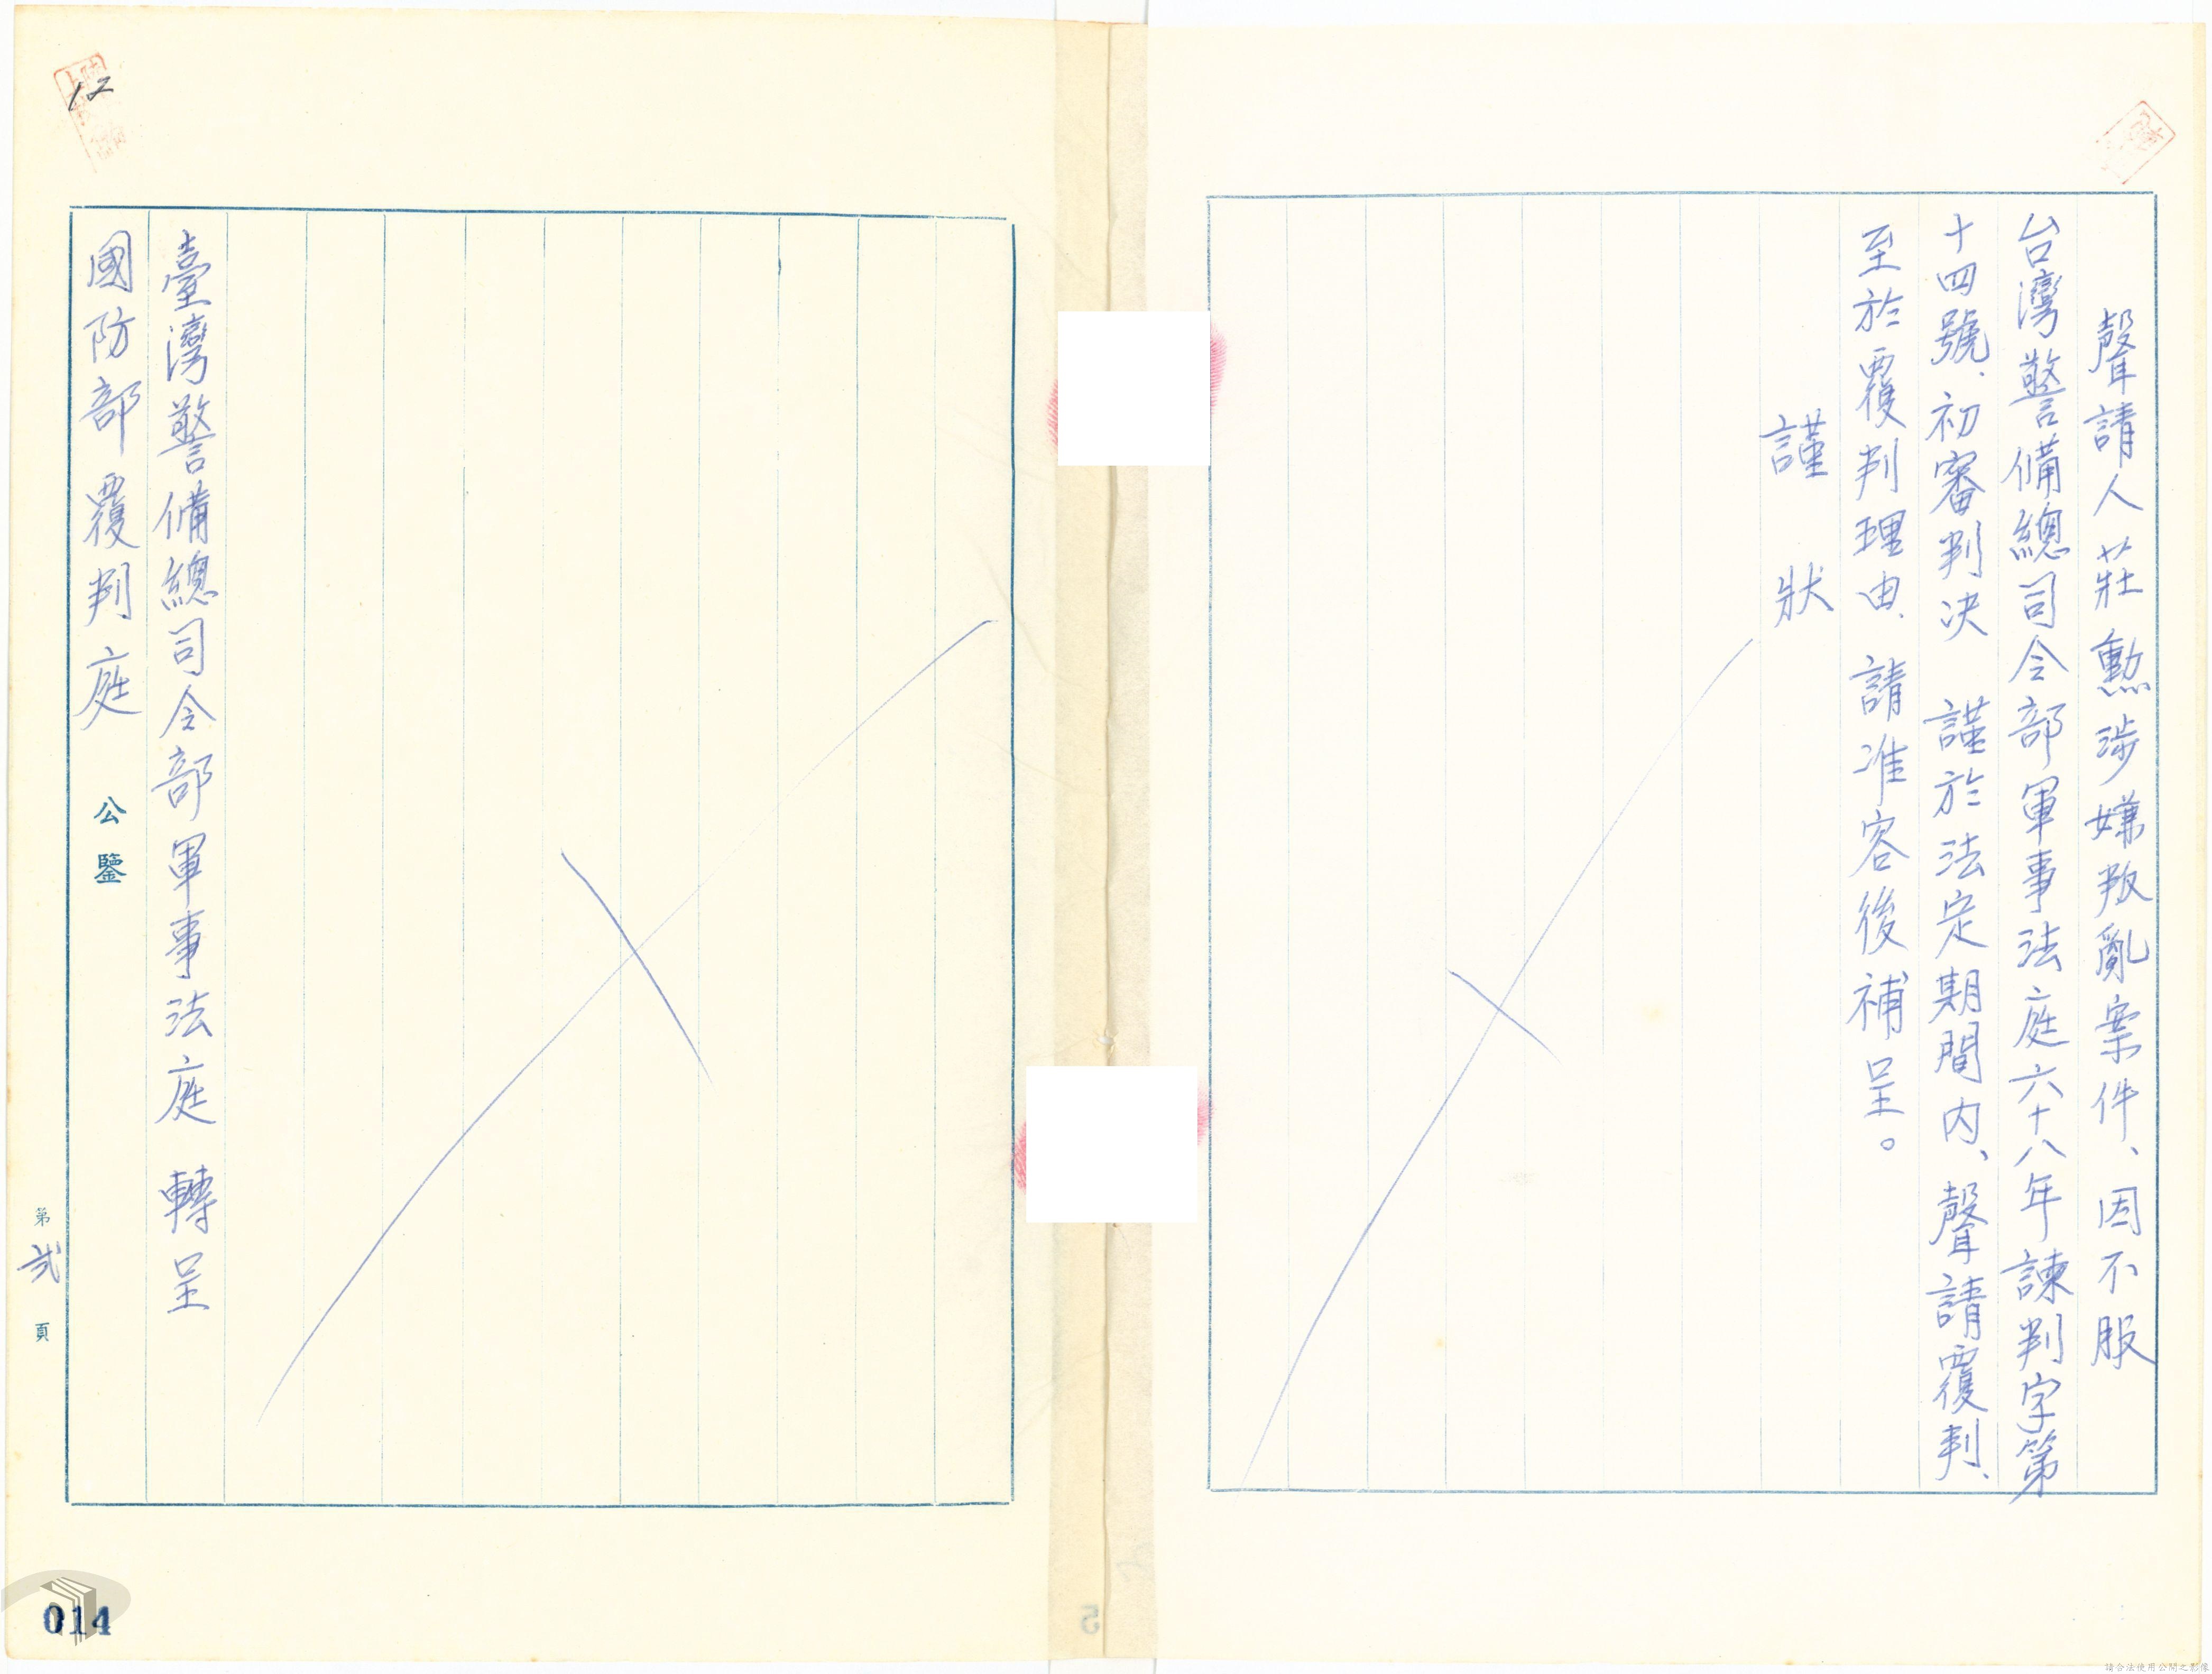 聲請人莊勳涉嫌叛亂案件、因不服
台灣警備總司令部軍事法庭六十八年諫判字第
十四號、初審判決　謹於法定期間內、聲請覆判、
至於覆判理由、請准容後補呈。
謹　狀
臺灣警備總司令部軍事法庭　轉呈
國防部覆判庭　公鑒
第弍頁
12
014
5
請合法使用公開之影像